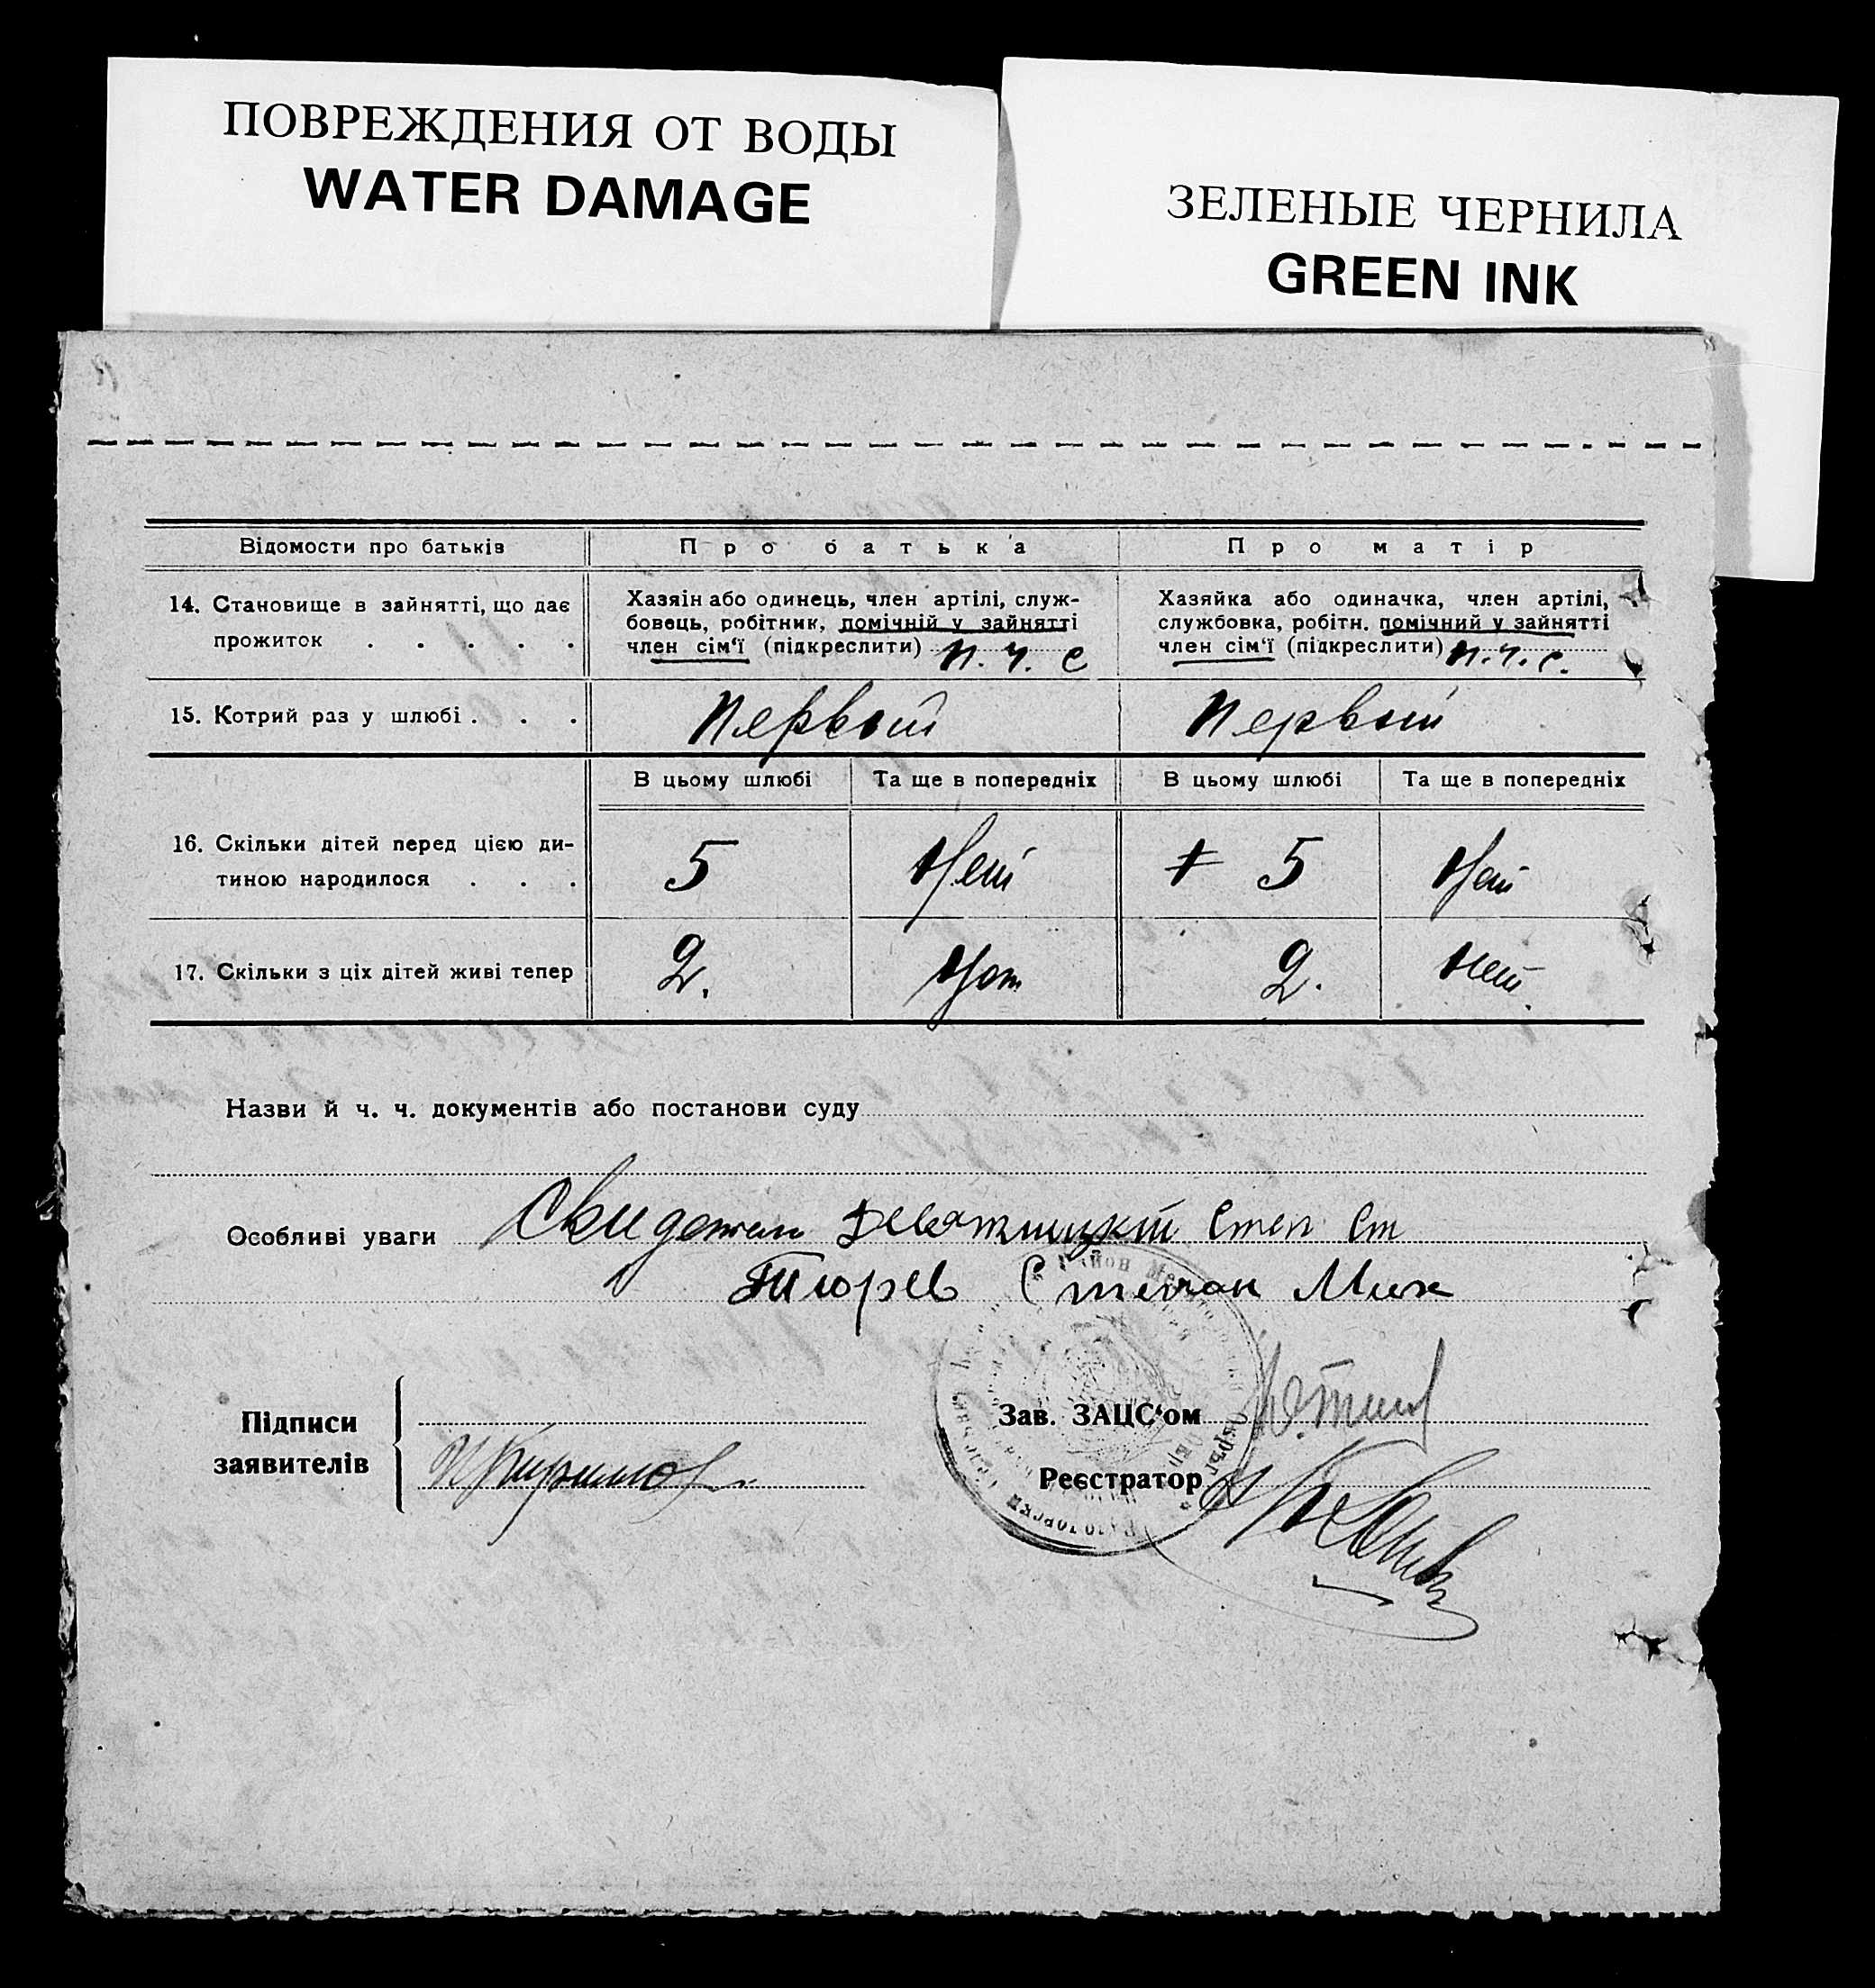 ПОВРЕЖДЕНИЯ ОТ ВОДЫ
WATER DAMAGE
ЗЕЛЕНЫЕ ЧЕРНИЛА
GREEN INK
Відомости про батьків
Про батька
Про матір
14. Становище в зайнятті, що дає
прожиток . . . . .
Хазяін або одинець, член артілі, служ-
бовець, робітник, помічній у зайнятті
член сім‘ї (підкреслити) п. ч. с
Хазяйка або одиначка, член артілі,
службовка, робітн. помічний у зайнятті
член сім‘ї (підкреслити) п. ч. с.
15. Котрий раз у шлюбі . . .
Первый
Первый
В цьому шлюбі
Та ще в попередніх
В цьому шлюбі
Та ще в попередніх
16. Скільки дітей перед цією ди-
тиною народилося . . .
5
Нет
+ 5
Нет
17. Скільки з ціх дітей живі тепер
2.
Нет
2.
нет.
Назви й ч. ч. документів або постанови суду
Особливі уваги
Степ Ст
Тюрев Степан Мих
Підписи
заявителів
Зав. ЗАЦС‘ом
Реєстратор